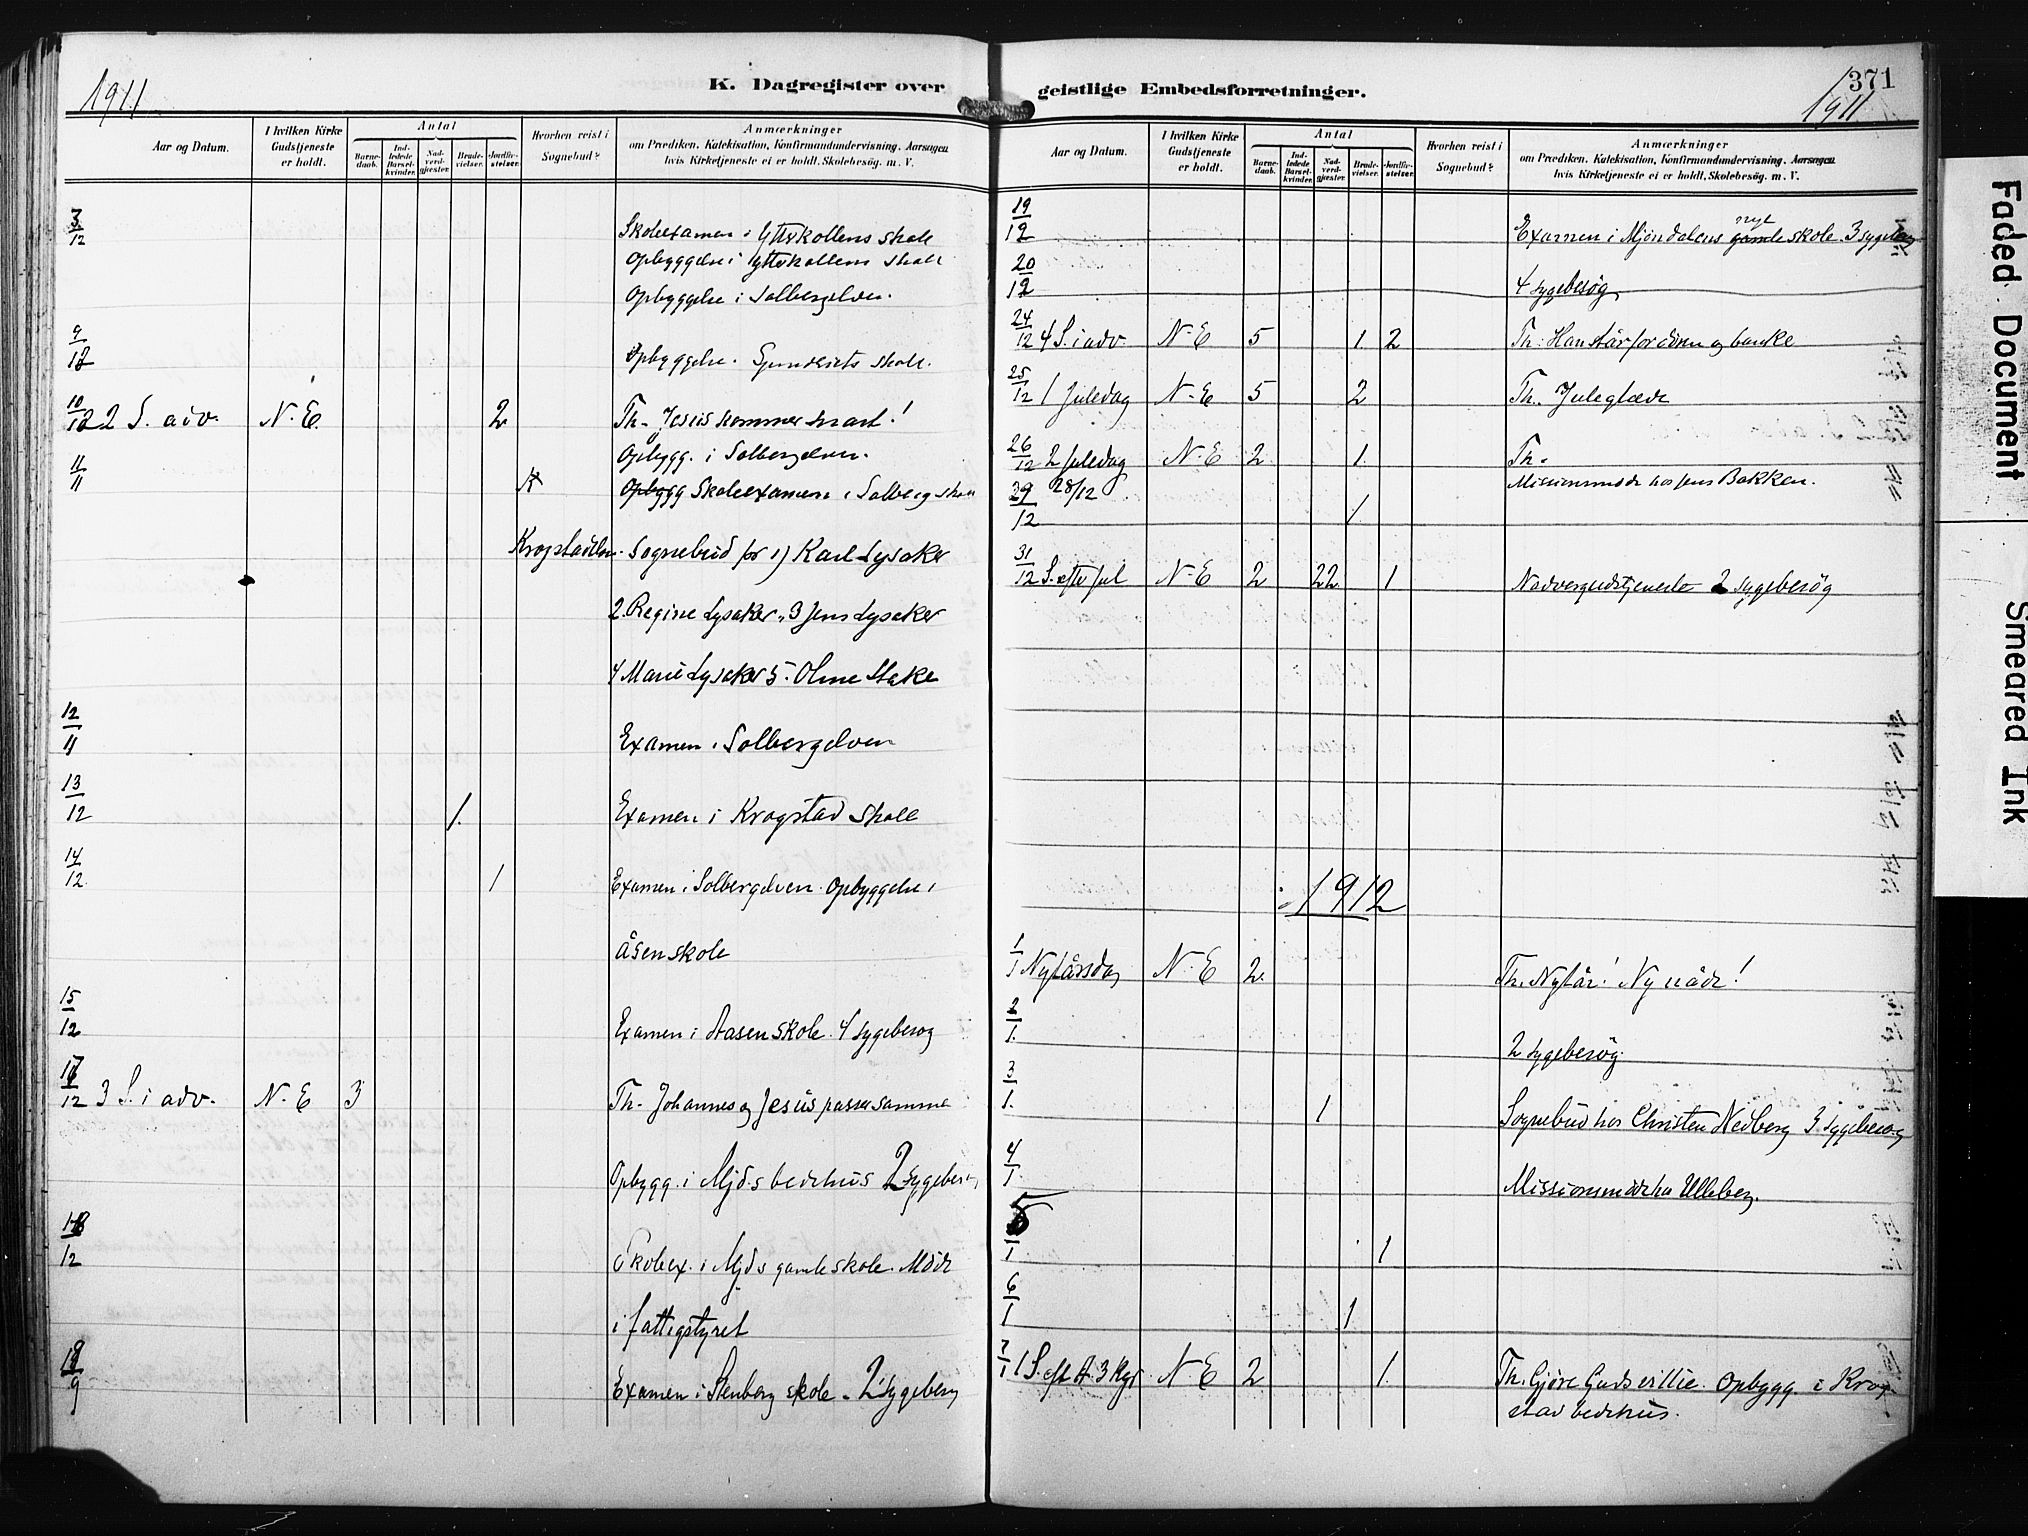 1911
K. Dagregister over
Aar og Datum. I hvilken Kirke Gudstjeneste er holdt. Antal Barnedaab. Indledede Barselkvinder. Nadverdgjæster. Brudevielser. Jordfæstelser. Hvorhen reist i Sognebud? Anmærkninger om Prædiken, Katekisation, Konfirmandundervisning, Aarsagen hvis Kirketjeneste ei er holdt, Skolebesøg. m. V.
3/12 Skoleexamen i Ytterkollens skole
Opbyggelse i Ytterkollens skole
Opbyggelse i Solbergelven.
9/12 Opbyggelse. skole.
10/12 2 S. adv. N. E. 2 Th. Jesus kommer snart!
Opbygg. i Solbergelven.
11/11 Skoleexamen i Solberg skole
Krogstadelven. Sognebud for 1) Karl Lysaker
2. Regine Lysaker, 3 Jens Lysaker
4 Marie Lysaker 5. Stake
12/11 Examen i Solbergelven
13/12 1. Examen i Krogstad skole
14/12 1 Examen i Solbergelven. Opbyggelse i
Åsen skole
15/12 Examen i Aasen skole. 4 sygebesøg
17/12 3 S. i adv. N. E 3 Th. Johannes og Jesus passer sammen
Opbygg. i Mjd.s bedehus 2 sygebesøg
18/12 Skoleex. i Mjds gamle skole. Møde
i fattigstyret
Examen i Stenberg skole. 2 sygebesøg
371
1911
geistlige Embedsforretninger.
Aar og Datum. I hvilken Kirke Gudstjeneste er holdt. Antal Barnedaab. Indledede Barselkvinder. Nadverdgjæster. Brudevielser. Jordfæstelser. Hvorhen reist i Sognebud? Anmærkninger om Prædiken, Katekisation, Konfirmandundervisning, Aarsagen hvis Kirketjeneste ei er holdt, Skolebesøg. m. V.
nye
19/12 Examen i Mjøndalens gamle skole. 3 sygebesøg
20/12 4 sygebesøg
24/12 4 S. i adv. N. E 5 1. 2 Th: Han står for døren og banke
25/12 1 Juledag N. E 5 2 Th. Juleglæde
26/12 2 Juledag N. E 2 1. Th.
28/12 Missionsmøde hos Jens Bakken.
29/12 1.
31/12 S. efter jul N. E 2 22 1 Nadvergudstjeneste 2 sygebesøg
1912
1/1 Nytårsdag N. E 2. Th. Nytår! Ny nåde!
2/1. 2 sygebesøg.
3/1. 1 Sognebud hos Christen Nedberg 3 sygebesøg
4/1. Missionsmøde hos Ulleberg.
5/1 1
6/1 1
7/1 1 S. eft. N. E 2 1. Th. Gjøre Guds villie. Opbygg. i Krog-
stad bedehus.
Faded Document
Smeared Ink